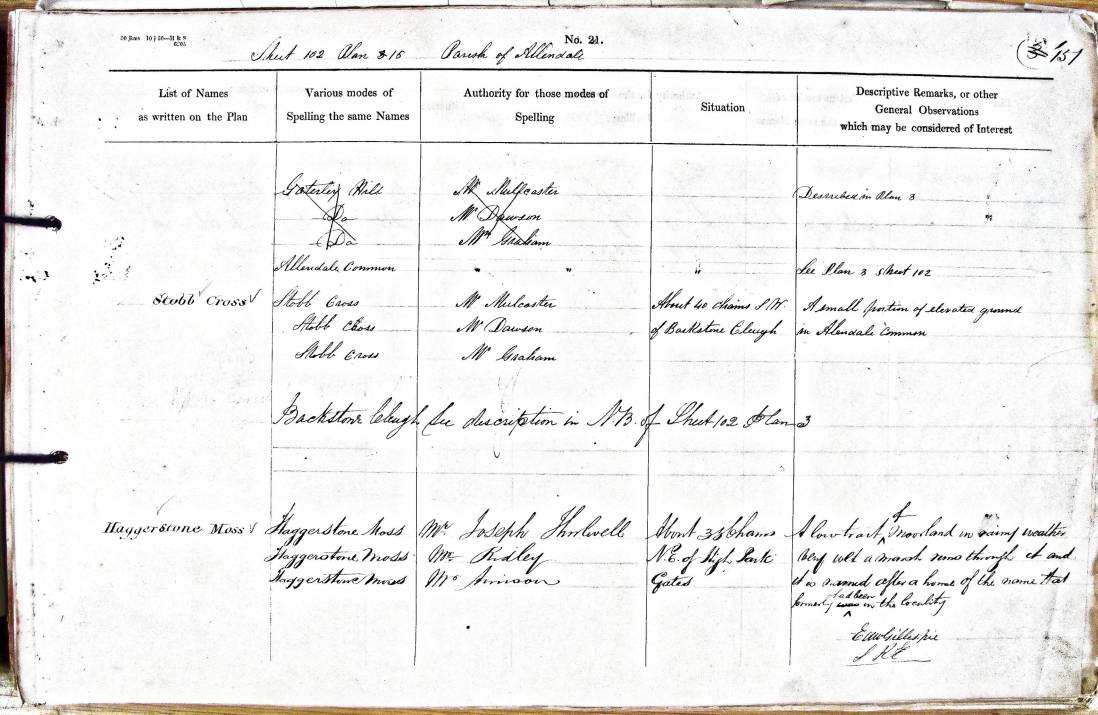 No. 21.
Sheet 102 Plan 8-16 Parish of Allendale
151
List of Names
as written on the Plan
Various modes of
Spelling the same Names
Authority for those modes of
Spelling
Situation
Descriptive Remarks, or other
General Observations
which may be considered of Interest
Goterley Hill Mr Mulcaster Described in Plan 3
Do Mr Dawson
Do Mr Graham
Allendale Common " " " See Plan 3 Sheet 102
Stobb Cross Stobb Cross Mr Mulcaster About 40 chains S.W. A small portion of elevated ground
Stobb Cross Mr Dawson of Backstone Cleugh in Allendale Common
Stobb Cross Mr Graham
Backstone Cleugh See description in N.B. of Sheet 102 Plan 3
Haggerstone Moss Haggerstone Moss Mr Joseph Thirlwell About chains A low tract of Moorland in rainy weather
Haggerstone Moss Mr Ridley N.E. of High Park very wet a marsh runs through it and
Haggerstone Moss Gates it is named after a home of the name that
formerly was had been in the locality
Edw Gillespie
S RE